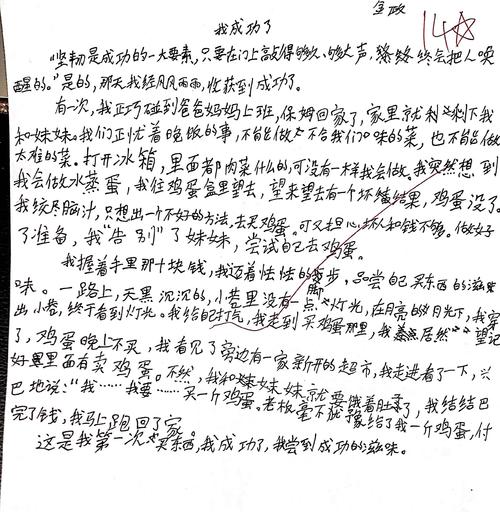 金政
14☆
我成功了
"坚韧是成功的一大要素,只要在门上敲得够久、够大声,终会把人唤
醒的。"是的,那天我经风风雨雨,收获到成功了。
有一次,我正巧碰到爸爸妈妈上班,保姆回家了,家里就剩下我
和妹妹。我们正忧着晚饭的事,不能做不合我们口味的菜,也不能做
太难的菜。打开冰箱,里面都肉菜什么的,可没有一样我会做。我突然想到
我会做水蒸蛋,我往鸡蛋盒里望去,望来望去有一个坏结果,鸡蛋没了。
我绞尽脑汁,只想出一个不好的方法,去买鸡蛋。可又担心坏人和钱不够。做好
了准备,我"告别"了妹妹,尝试自己去鸡蛋。
我握着手里那十块钱,我迈着怯怯的脚步,品尝自己买东西的滋
味。一路上,天黑沉沉的,小巷里没有一点灯光,在月亮的月光下,我
出小巷,终于看到灯光。我给自己打气,我走到买鸡蛋那里,我居然望记
了,鸡蛋晚上不买,我看见了旁边有一家新开的超市,我走进看了一下,兴
好里面有卖鸡蛋。不然,我和妹妹就要饿着肚子了,我结结巴
巴地说:"我……我要……买一个鸡蛋。老板毫不犹豫给了我一斤鸡蛋,付
完了钱,我马上跑回了家。
这是我第一次买东西,我成功了,我尝到成功的滋味。